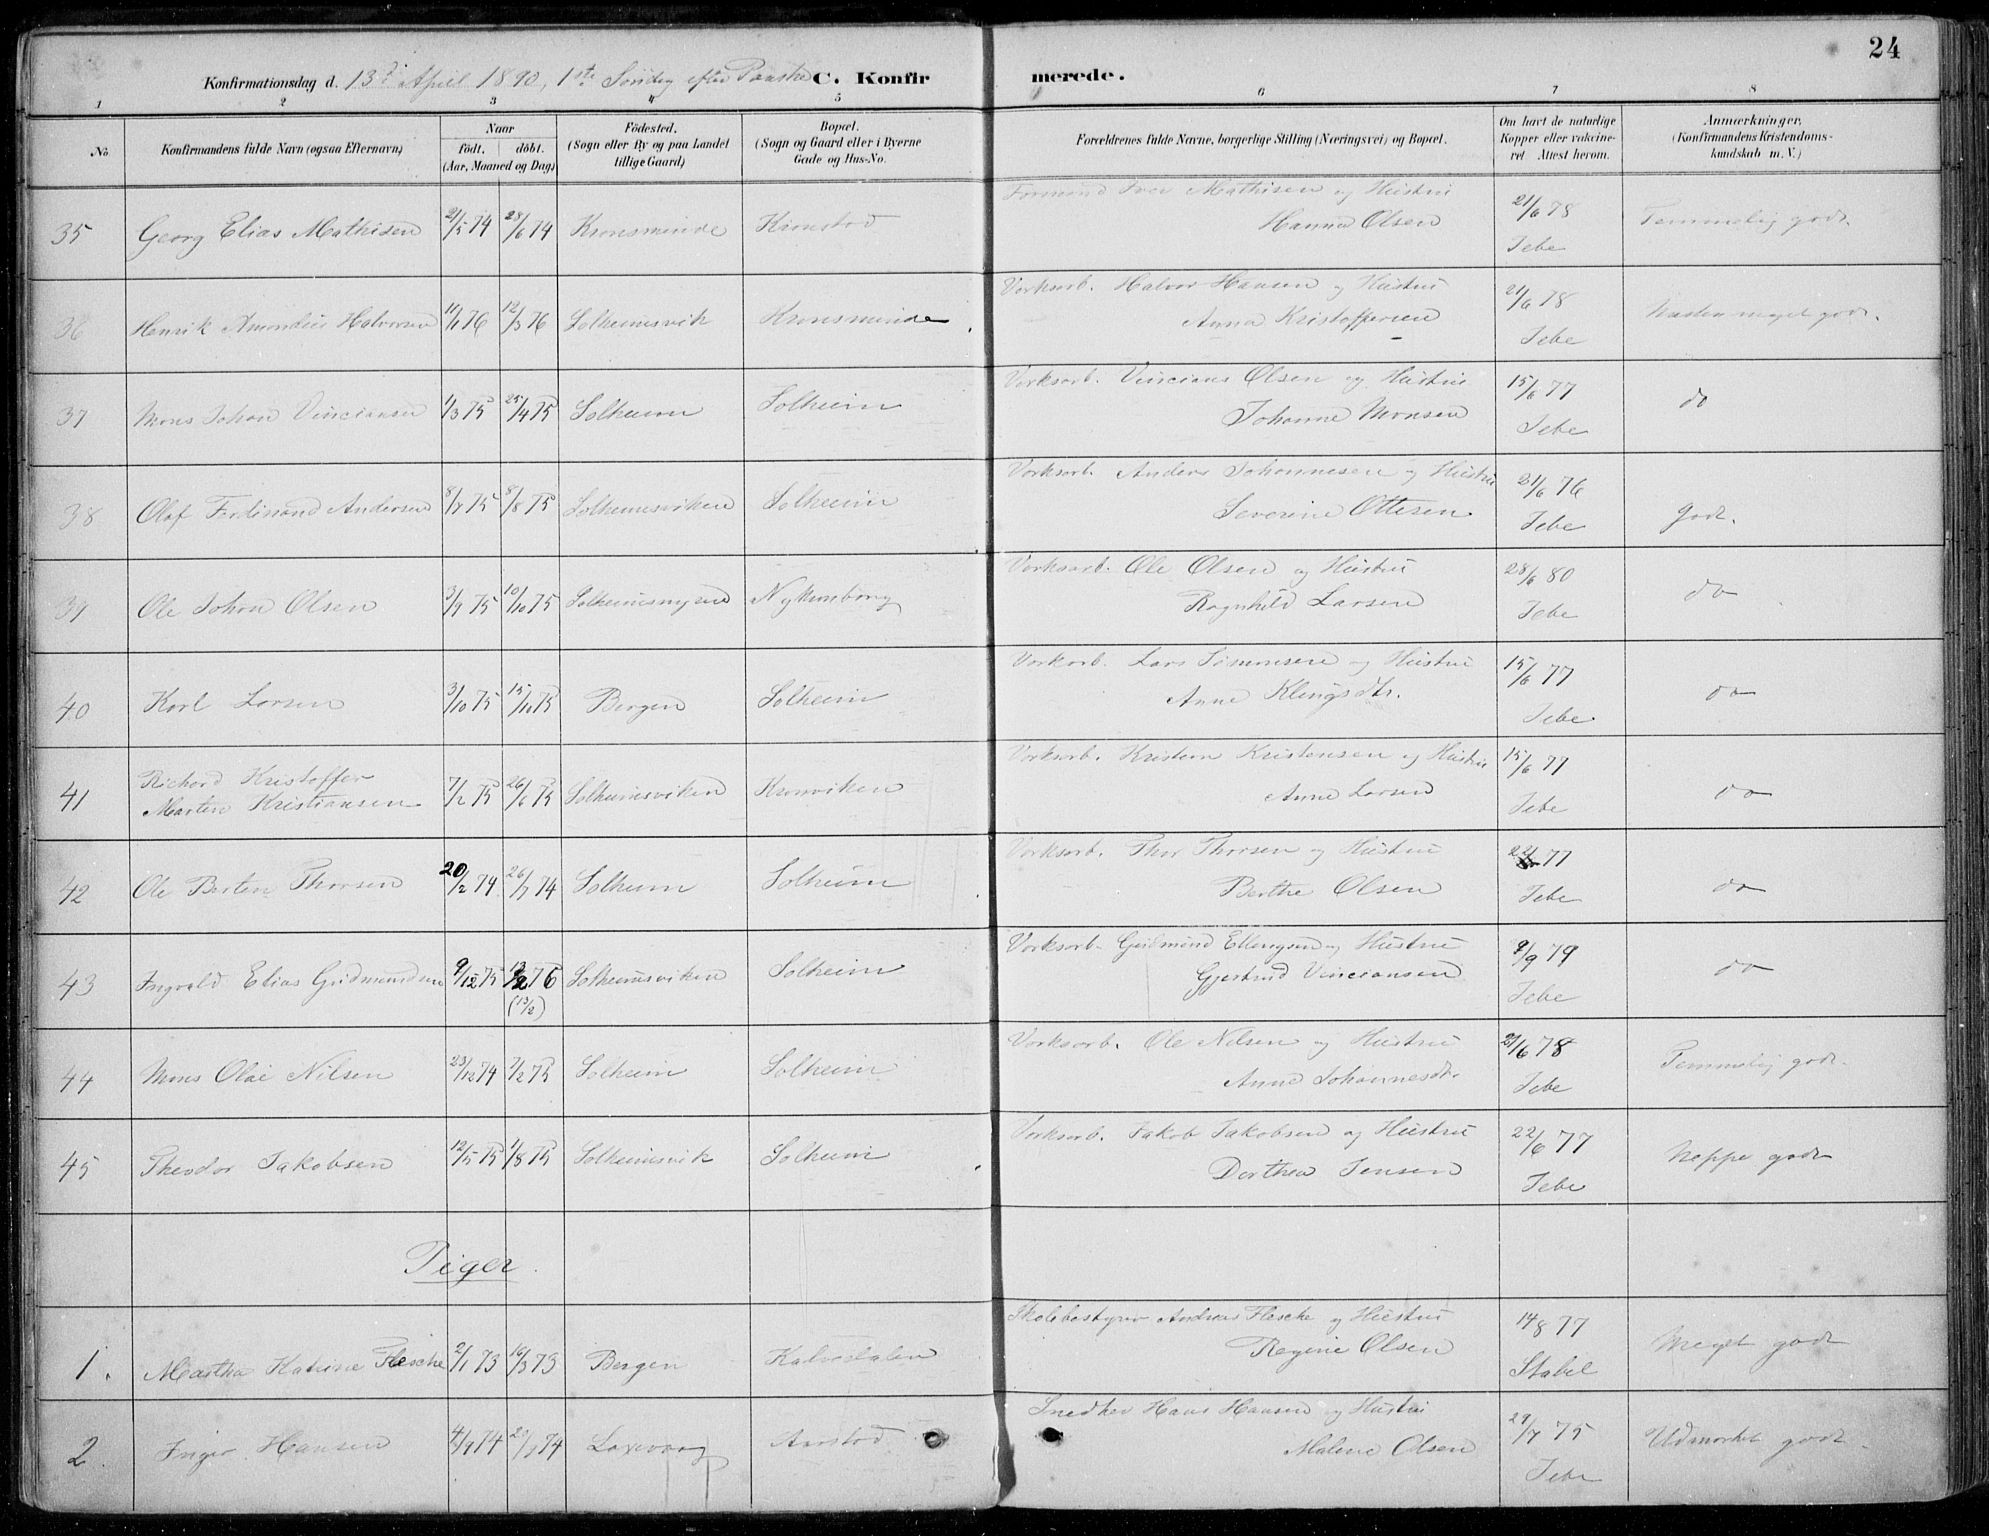 24
Konfirmationsdag d. 13de April 1890, 1ste Søndag efter Paaske C. Konfirmerede.
1 2 3 4 5 6 7 8
No
Konfirmandens fulde Navn (ogsaa Efternavn)
Naar
født. döbt.
(Aar, Maaned og Dag)
Födested.
(Sogn eller By og paa Landet
tillige Gaard)
Bopæl.
(Sogn og Gaard eller i Byerne
Gade og Hus-No.
Forældrenes fulde Navne, borgerlige Stilling (Næringsvei) og Bopæl.
Om havt de naturlige
Kopper eller vakcine-
ret Attest herom.
Anmærkninger,
(Konfirmandens Kristendoms-
kundskab m. V.)
35 Georg Elias Mathisen 21/5 74 28/6 74 Kronsminde Kronstad Formand Iver Mathisen og Hustru
Hanna Olsen 21/6 78 Jebe Temmelig godt.
36 Henrik Amandus Halvorsen 11/1 76 12/3 76 Solheimsvik Kronsminde Verksarb. Halvor Hansen og Hustru
Anna Kristoffersen 21/6 78 Jebe Næsten meget godt.
37 Mons Johan Vinciansen 1/3 75 25/4 75 Solheim Solheim Verksarb. Vincians Olsen og Hustru
Johanne Monsen 15/6 77 Jebe do
38 Olaf Ferdinand Andersen 8/7 75 8/8 75 Solheimsviken Solheim Verksarb. Anders Johannesen og Hustru
Severine Ottesen 21/6 76 Jebe godt.
39 Ole Johan Olsen 3/9 75 10/10 75 Solheimsmyren Nykrunborg Verksarb. Ole Olsen og Hustru
Ragnhild Larsen 28/6 80 Jebe do
40 Karl Larsen 3/10 75 15/10 75 Bergen Solheim Verksarb. Lars Simonsen og Hustru
Anne Klengsdtr. 15/6 77 Jebe do
41 Richard Kristoffer
Martin Kristiansen 7/2 75 26/6 75 Solheimsviken Kronviken Verksarb. Kristen Kristensen og Hustru
Anne Larsen 15/6 77 Jebe do
42 Ole Bertin Thorsen 20/2 74 26/7 74 Solheim Solheim Verksarb. Thor Thorsen og Hustru
Berthe Olsen 77 Jebe do
43 Ingvald Elias Gudmundsen 9/12 75 13/2 76 (13/2) Solheimsviken Solheim Verksarb. Gudmund Ellingsen og Hustru
Gjertrud Vinciansen 9/9 79 Jebe do
44 Mons Olai Nilsen 23/12 74 7/2 75 Solheim Solheim Verksarb. Ole Nilsen og Hustru
Anne Johannesdtr. 21/6 78 Jebe Temmelig godt.
45 Theodor Jakobsen 12/5 75 1/8 75 Solheimsvik Solheim Verksarb. Jakob Jakobsen og Hustru
Dorthea Jensen 22/6 77 Jebe Neppe godt
Piger.
1. Martha Katrine Flesche 2/1 73 16/3 73 Bergen Kalvedalen Skolebestyrer Andreas Flesche og Hustru
Regine Olsen 14/8 77 Stabel Meget godt
2. Inger Hansen 4/7 74 74 Laxevaag Aarstad Snedker Hans Hansen og Hustru
Malene Olsen 29/7 75 Jebe Udmærket godt.